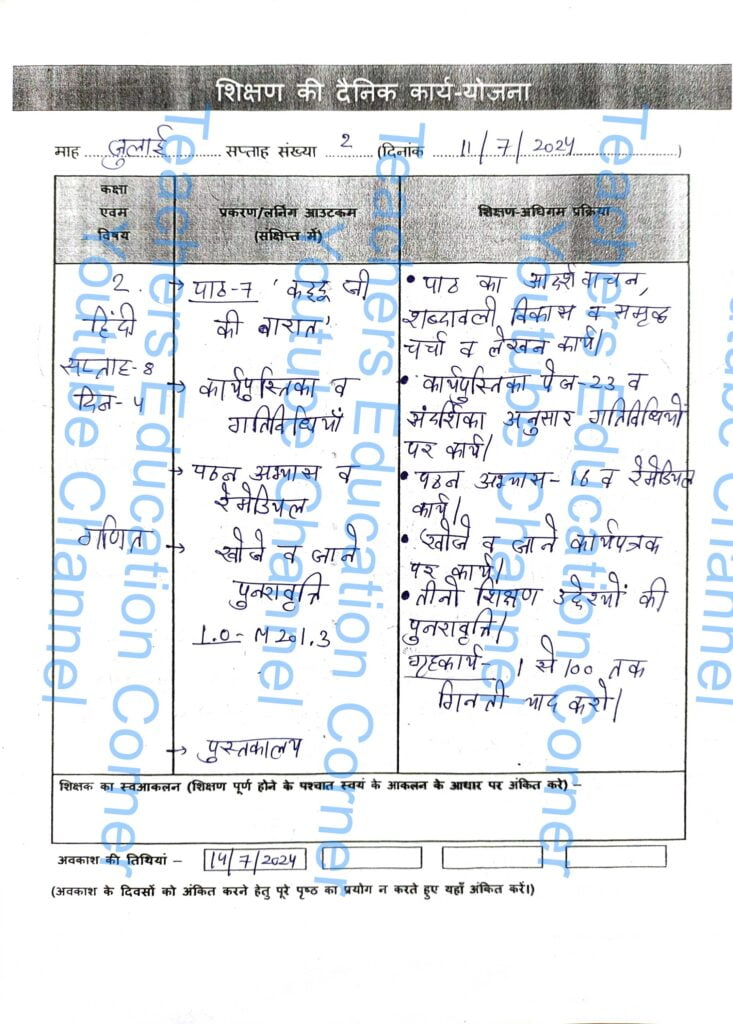 शिक्षण की दैनिक कार्य-योजना
माह जुलाई सप्ताह संख्या 2 (दिनांक 11/7/2024)
कक्षा
एवम
विषय
प्रकरण/लर्निंग आउटकम
(संक्षिप्त में)
शिक्षण-अधिगम प्रक्रिया
2.
हिंदी
सप्ताह-8
दिन-4
गणित
→ पाठ-7 'कद्दू जी
की बारात'
→ कार्यपुस्तिका व
गतिविधियाँ
→ पठन अभ्यास व
रेमेडियल
→ खोजे व जाने
पुनरावृत्ति
L.O- M 201.3
→ पुस्तकालय
• पाठ का आदर्शवाचन,
शब्दावली विकास व समृद्ध
चर्चा व लेखन कार्य।
• कार्यपुस्तिका पेज-23 व
संदर्शिका अनुसार गतिविधियों
पर कार्य।
• पठन अभ्यास-16 व रेमेडियल
कार्य।
• खोजे व जाने कार्यपत्रक
पर कार्य।
• तीनों शिक्षण उद्देश्यों की
पुनरावृत्ति।
गृहकार्य- 1 से 100 तक
गिनती याद करो।
शिक्षक का स्वआकलन (शिक्षण पूर्ण होने के पश्चात स्वयं के आकलन के आधार पर अंकित करे) –
अवकाश की तिथियां – 14/7/2024
(अवकाश के दिवसों को अंकित करने हेतु पूरे पृष्ठ का प्रयोग न करते हुए यहाँ अंकित करें।)
Teachers Education Corner
Youtube Channel
Teachers Education Corner
Youtube Channel
Teachers Education Corner
Youtube Channel